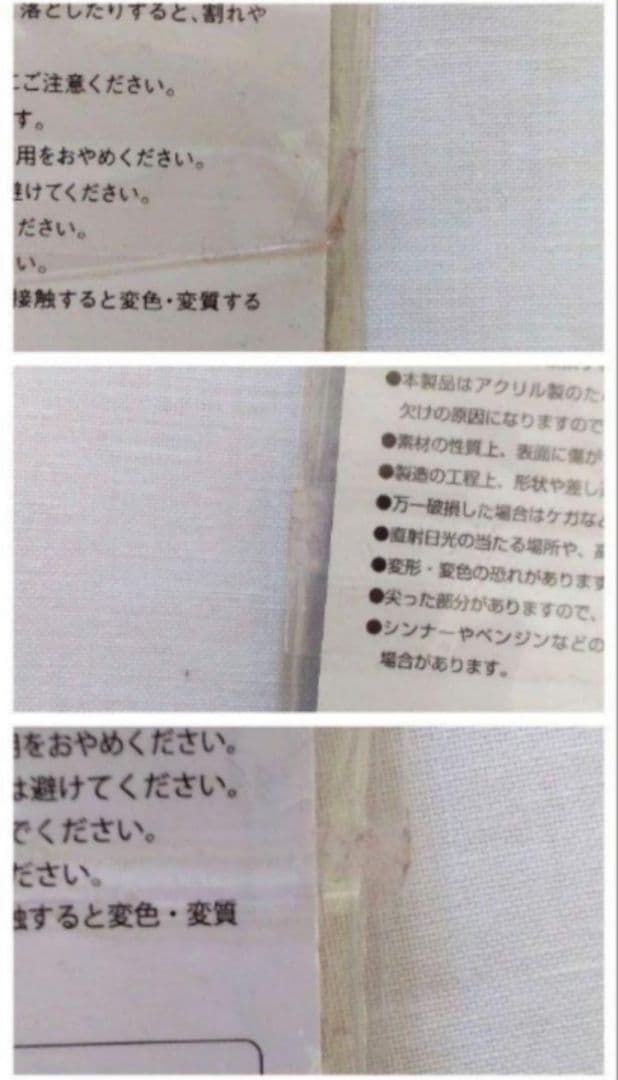 落としたりすると、割れや
ご注意ください。
す。
用をおやめください。
避けてください。
ださい。
い。
接触すると変色・変質する
●本製品はアクリル製のた
欠けの原因になりますので
●素材の性質上、表面に傷が
●製造の工程上、形状や差し
●万一破損した場合はケガな
●直射日光の当たる場所や、
●変形・変色の恐れがあります
●尖った部分がありますので、
●シンナーやベンジンなどの
場合があります。
用をおやめください。
は避けてください。
でください。
ださい。
触すると変色・変質